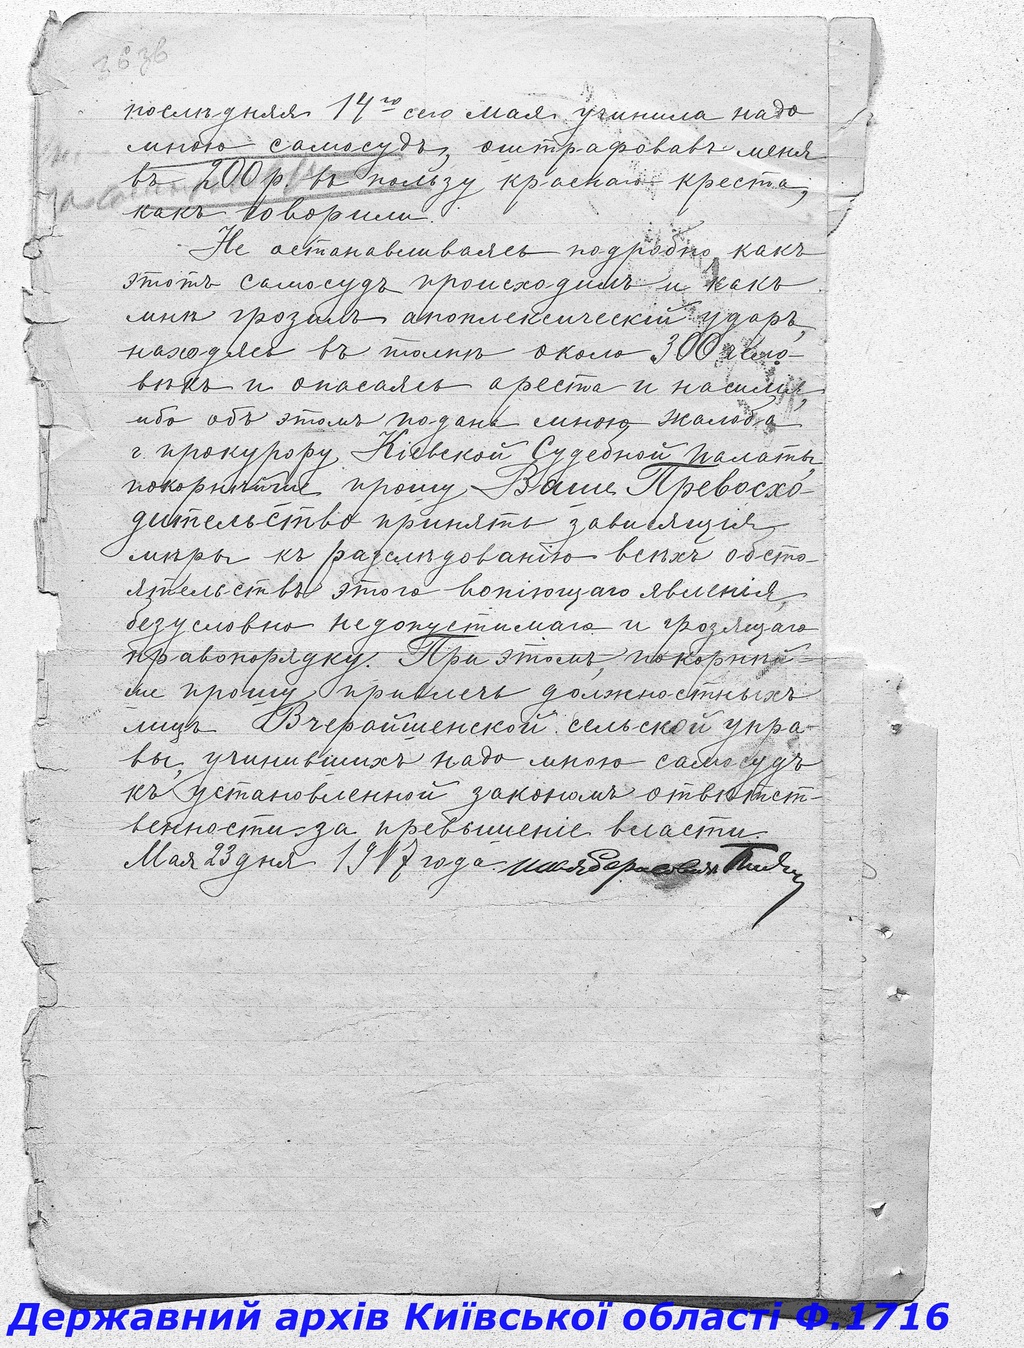 последняя 14го сего мая учинила надо
мною самосудъ, оштрафовавъ меня
въ 200 р. въ пользу краснаго креста,
какъ говорили.
Не останавливаясь подробно, какъ
этотъ самосудъ происходилъ и какъ
мнѣ грозилъ апоплексическій ударъ,
находясь въ толпѣ около 300 чело-
вѣкъ и опасаясь ареста и насилія,
ибо объ этомъ подана мною жалоба
г. прокурору Кіевской Судебной палаты,
покорнѣйше прошу Ваше Превосхо-
дительство принять зависящія
мѣры къ разслѣдованію всѣхъ обсто-
ятельствъ этого вопіющаго явленія,
безусловно недопустимаго и грозящаго
правопорядку. При этомъ, покорнѣй-
ше прошу привлечь должностныхъ
лицъ Вчерайшенской сельской упра-
вы, учинившихъ надо мною самосудъ
къ установленной закономъ отвѣтст-
венности за превышеніе власти.
Мая 23 дня 1917 года
Державний архів Київської області Ф.1716